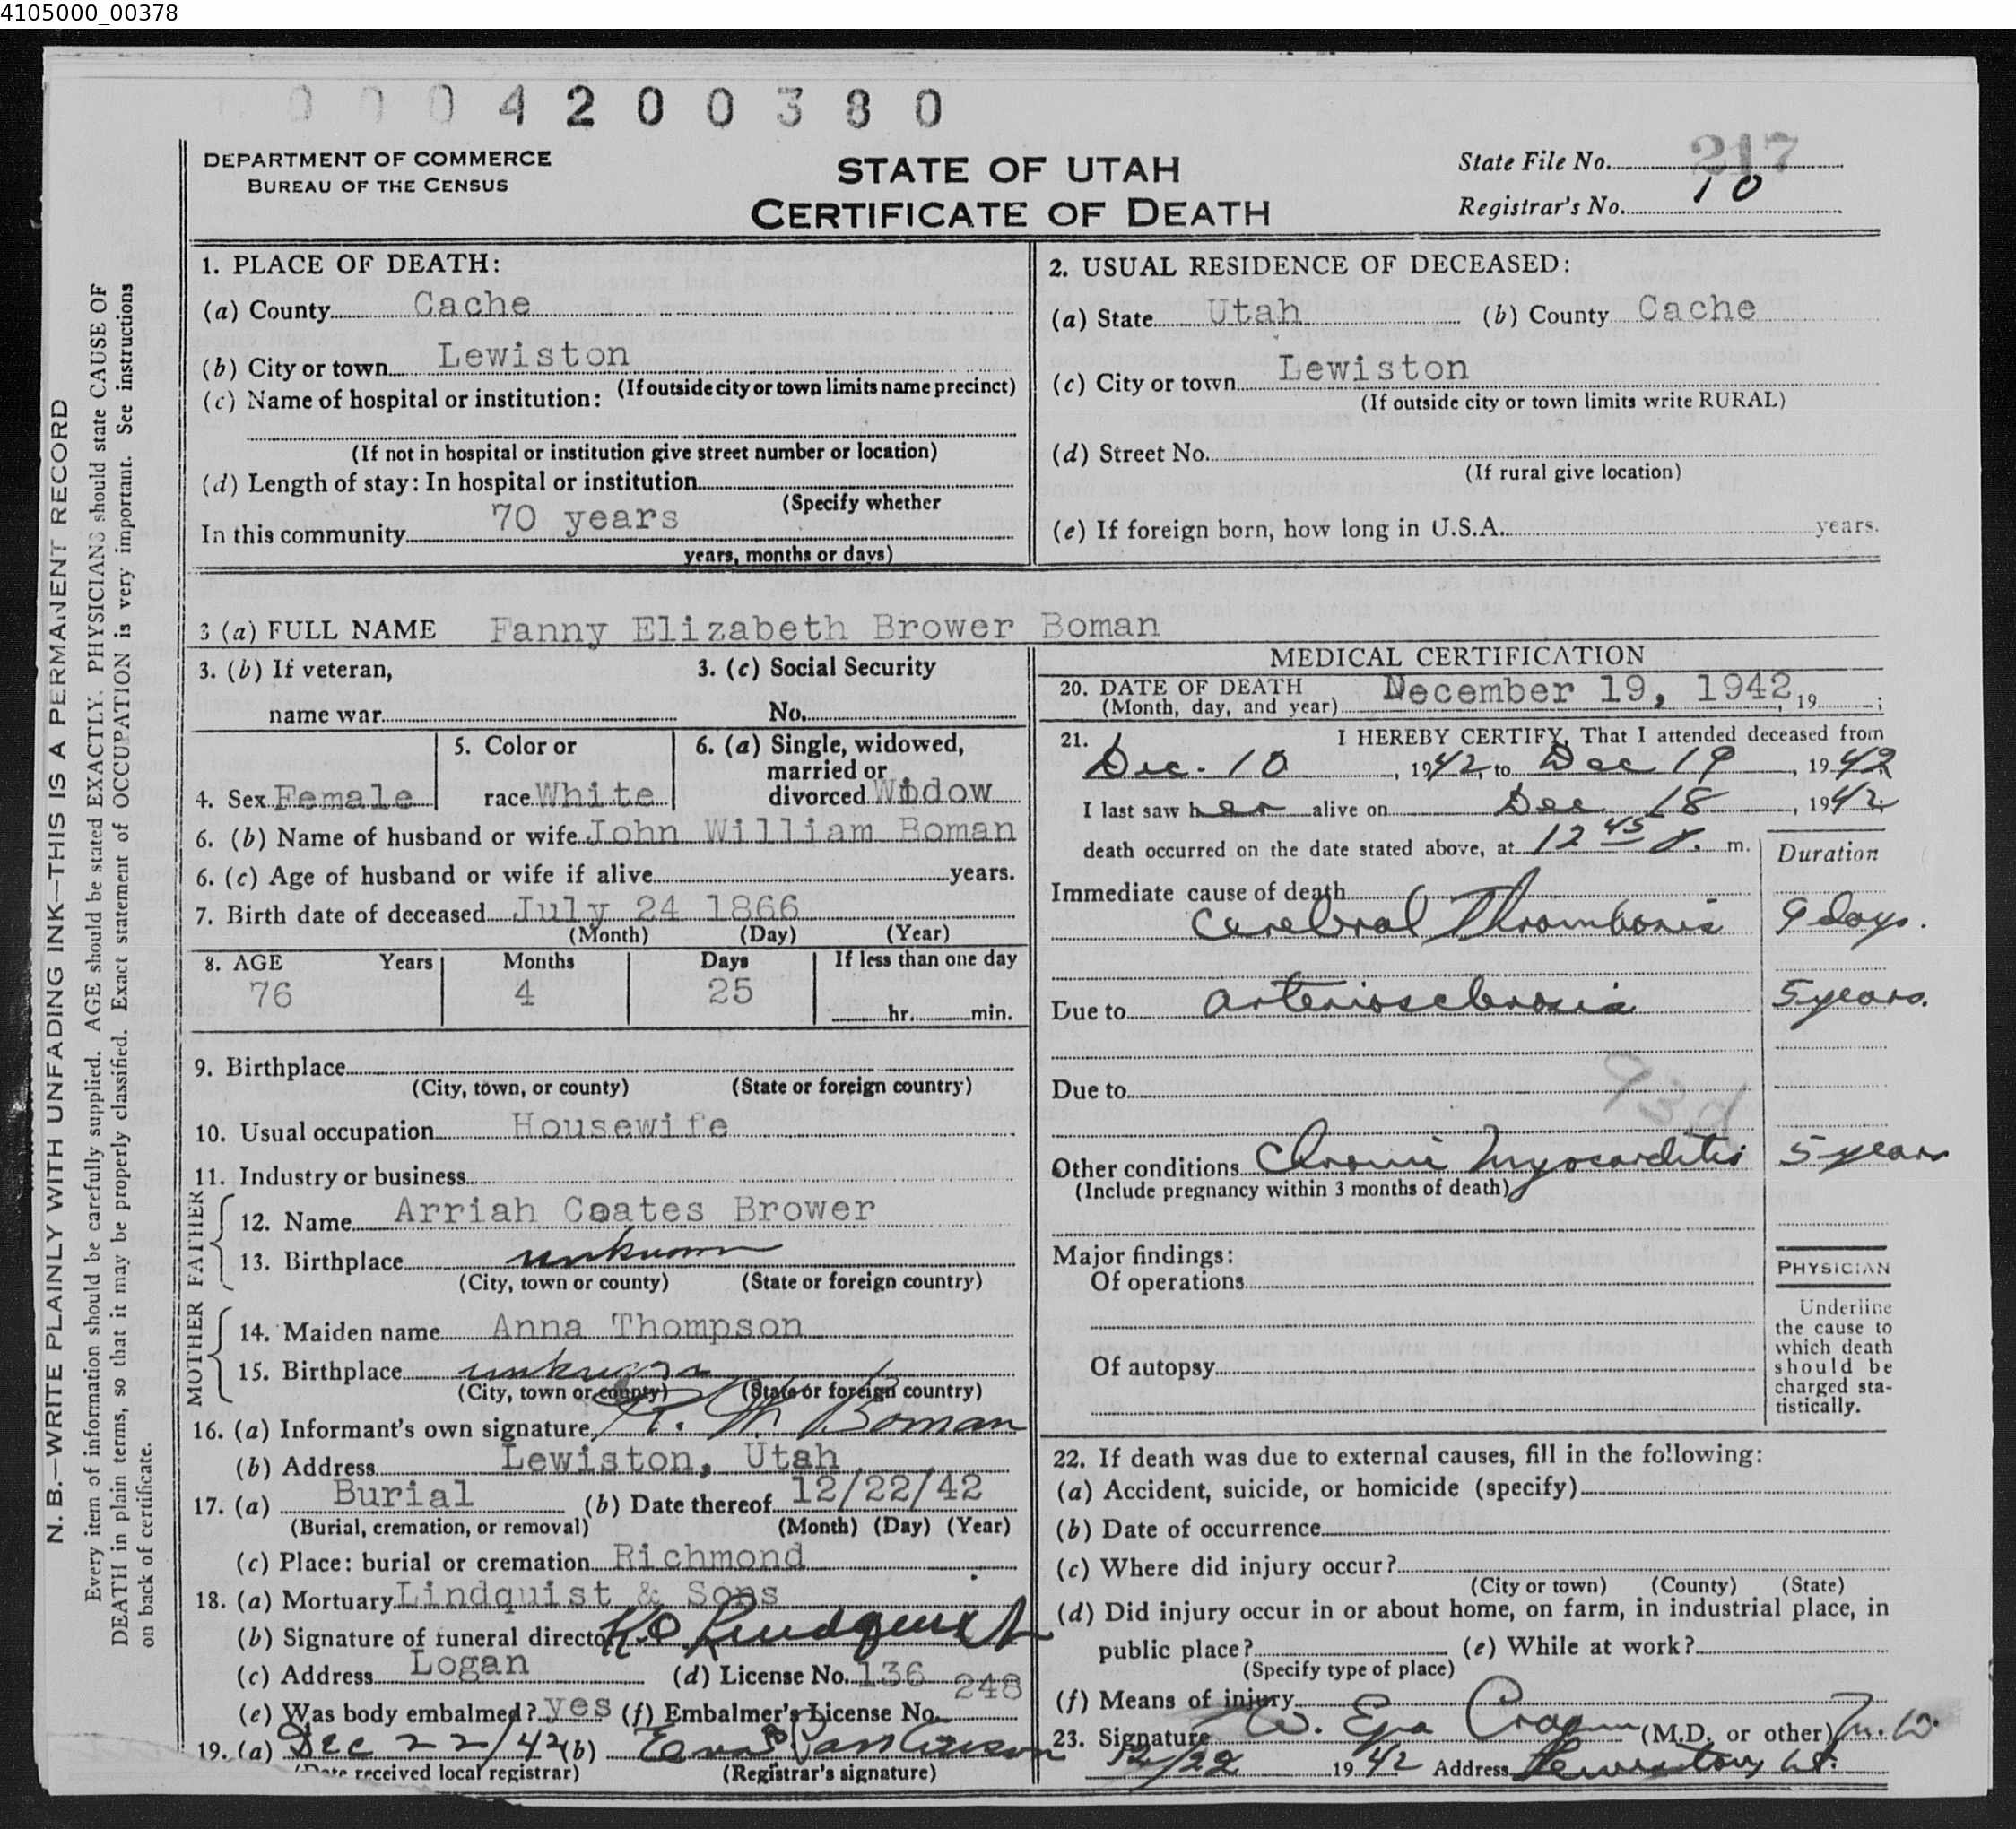 4105000_00378
0 0 0 4 2 0 0 3 8 0
DEPARTMENT OF COMMERCE
BUREAU OF THE CENSUS
STATE OF UTAH
CERTIFICATE OF DEATH
State File No. 217
Registrar's No. 10
N. B.—WRITE PLAINLY WITH UNFADING INK—THIS IS A PERMANENT RECORD
Every item of information should be carefully supplied. AGE should be stated EXACTLY. PHYSICIANS should state CAUSE OF
DEATH in plain terms, so that it may be properly classified. Exact statement of OCCUPATION is very important. See instructions
on back of certificate.
1. PLACE OF DEATH:
(a) County Cache
(b) City or town Lewiston
(If outside city or town limits name precinct)
(c) Name of hospital or institution:
(If not in hospital or institution give street number or location)
(d) Length of stay: In hospital or institution
(Specify whether
In this community 70 years
years, months or days)
2. USUAL RESIDENCE OF DECEASED:
(a) State Utah (b) County Cache
(c) City or town Lewiston
(If outside city or town limits write RURAL)
(d) Street No.
(If rural give location)
(e) If foreign born, how long in U.S.A. years.
3 (a) FULL NAME Fanny Elizabeth Brower Boman
3. (b) If veteran, 3. (c) Social Security
name war No.
4. Sex Female
5. Color or
race White
6. (a) Single, widowed,
married or
divorced Widow
6. (b) Name of husband or wife John William Boman
6. (c) Age of husband or wife if alive years.
7. Birth date of deceased July 24 1866
(Month) (Day) (Year)
8. AGE Years Months Days If less than one day
76 4 25 hr. min.
9. Birthplace
(City, town, or county) (State or foreign country)
10. Usual occupation Housewife
11. Industry or business
FATHER
12. Name Arriah Coates Brower
13. Birthplace unknown
(City, town or county) (State or foreign country)
MOTHER
14. Maiden name Anna Thompson
15. Birthplace unknown
(City, town or county) (State or foreign country)
16. (a) Informant's own signature W. Boman
(b) Address Lewiston, Utah
17. (a) Burial (b) Date thereof 12/22/42
(Burial, cremation, or removal) (Month) (Day) (Year)
(c) Place: burial or cremation Richmond
18. (a) Mortuary Lindquist & Sons
(b) Signature of funeral director Lindquist
(c) Address Logan (d) License No. 136
248
(e) Was body embalmed? yes (f) Embalmer's License No.
19. (a) Dec 22/42 (b) Eva
(Date received local registrar) (Registrar's signature)
MEDICAL CERTIFICATION
20. DATE OF DEATH December 19, 1942, 19 ;
(Month, day, and year)
21. I HEREBY CERTIFY, That I attended deceased from
Dec. 10, 1942, to Dec 19, 1942
I last saw her alive on Dec 18, 1942;
death occurred on the date stated above, at 12 45 m.
Duration
Immediate cause of death
Cerebral Thrombosis 9 days.
Due to arteriosclerosis 5 years.
Due to
93d
Other conditions Chronic Myocarditis 5 years
(Include pregnancy within 3 months of death)
Major findings:
Of operations
Of autopsy
PHYSICIAN
Underline
the cause to
which death
should be
charged sta-
tistically.
22. If death was due to external causes, fill in the following:
(a) Accident, suicide, or homicide (specify)
(b) Date of occurrence
(c) Where did injury occur?
(City or town) (County) (State)
(d) Did injury occur in or about home, on farm, in industrial place, in
public place? (e) While at work?
(Specify type of place)
(f) Means of injury
23. Signature W. Eza Cragun (M.D. or other) M. D.
12/22 1942 Address Lewiston, Ut.